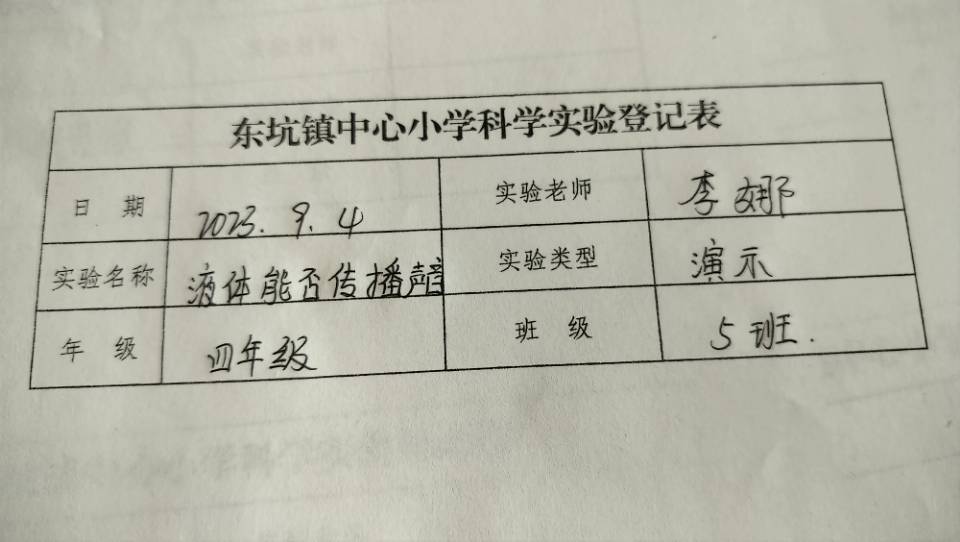 东坑镇中心小学科学实验登记表
日 期 2023.9.4 实验老师 李娜
实验名称 液体能否传播声音 实验类型 演示
年 级 四年级 班 级 5班.